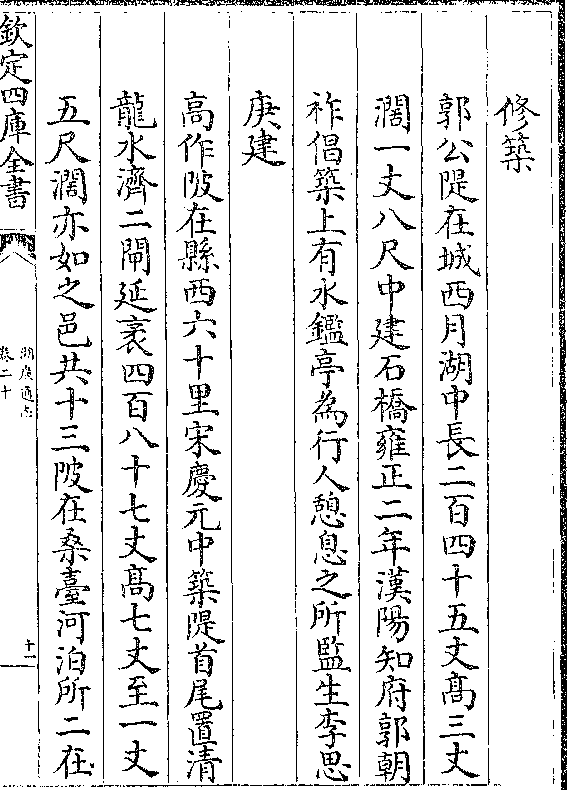 修築
郭公隄在城西月湖中長二百四十五丈髙三丈
濶一丈八尺中建石橋雍正二年漢陽知府郭朝
祚倡築上有水鑑亭為行人憩息之所監生李思
庚建
高作陂在縣西六十里宋慶元中築隄首尾置清
龍水濟二閘延袤四百八十七丈髙七丈至一丈
五尺濶亦如之邑共十三陂在桑臺河泊所二在
欽定四庫全書
湖廣通志
卷二十
十一